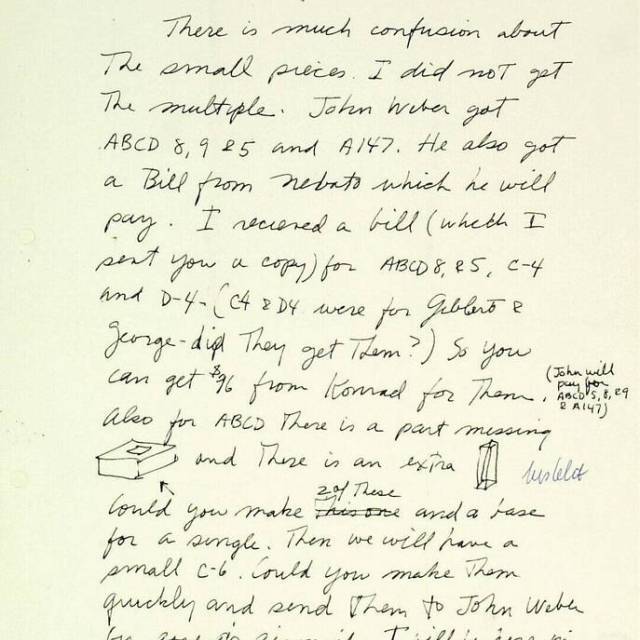 There is much confusion about
The small pieces. I did not get
The multiple. John Weber got
ABCD 8, 9 & 5 and A147. He also got
a Bill from Nebato which he will
pay. I recieved a bill (which I
sent you a copy) for ABCD 8, & 5, C-4
and D-4- (C4 & D4 were for Gilbert &
George - did They get Them?) So you
can get $96 from Konrad for Them.
(John will
pay for
ABCD 5, 8, & 9
& A147)
Also for ABCD There is a part missing
and There is an extra
2 of These
Could you make This one and a base
for a single. Then we will have a
small C-6. Could you make Them
quickly and send Them to John Weber
I will be